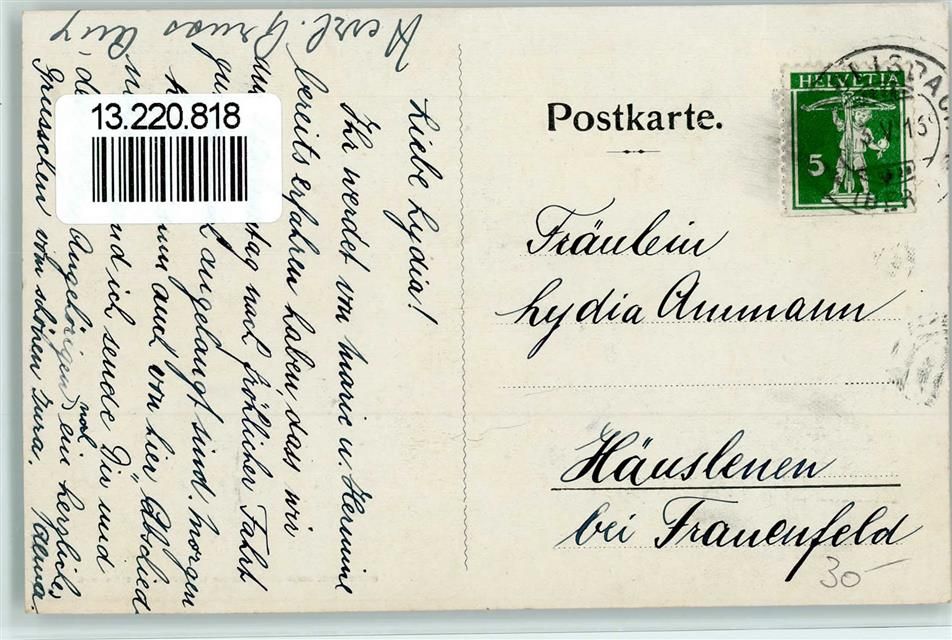 13.220.818
Postkarte.
HELVETIA
5
15
Fräulein
Lydia Ammann
Häuslenen
bei Frauenfeld
30-
Liebe Lydia!
Ihr werdet von Marie u. Hermine
bereits erfahren haben dass wir
tag nach fröhlicher Fahrt
angelangt sind. Morgen
auch von hier Abschied
und ich sende Dir und
Angehörigen noch ein herzliches
Grüsschen vom schönen Jura.
Herzl. Gruss